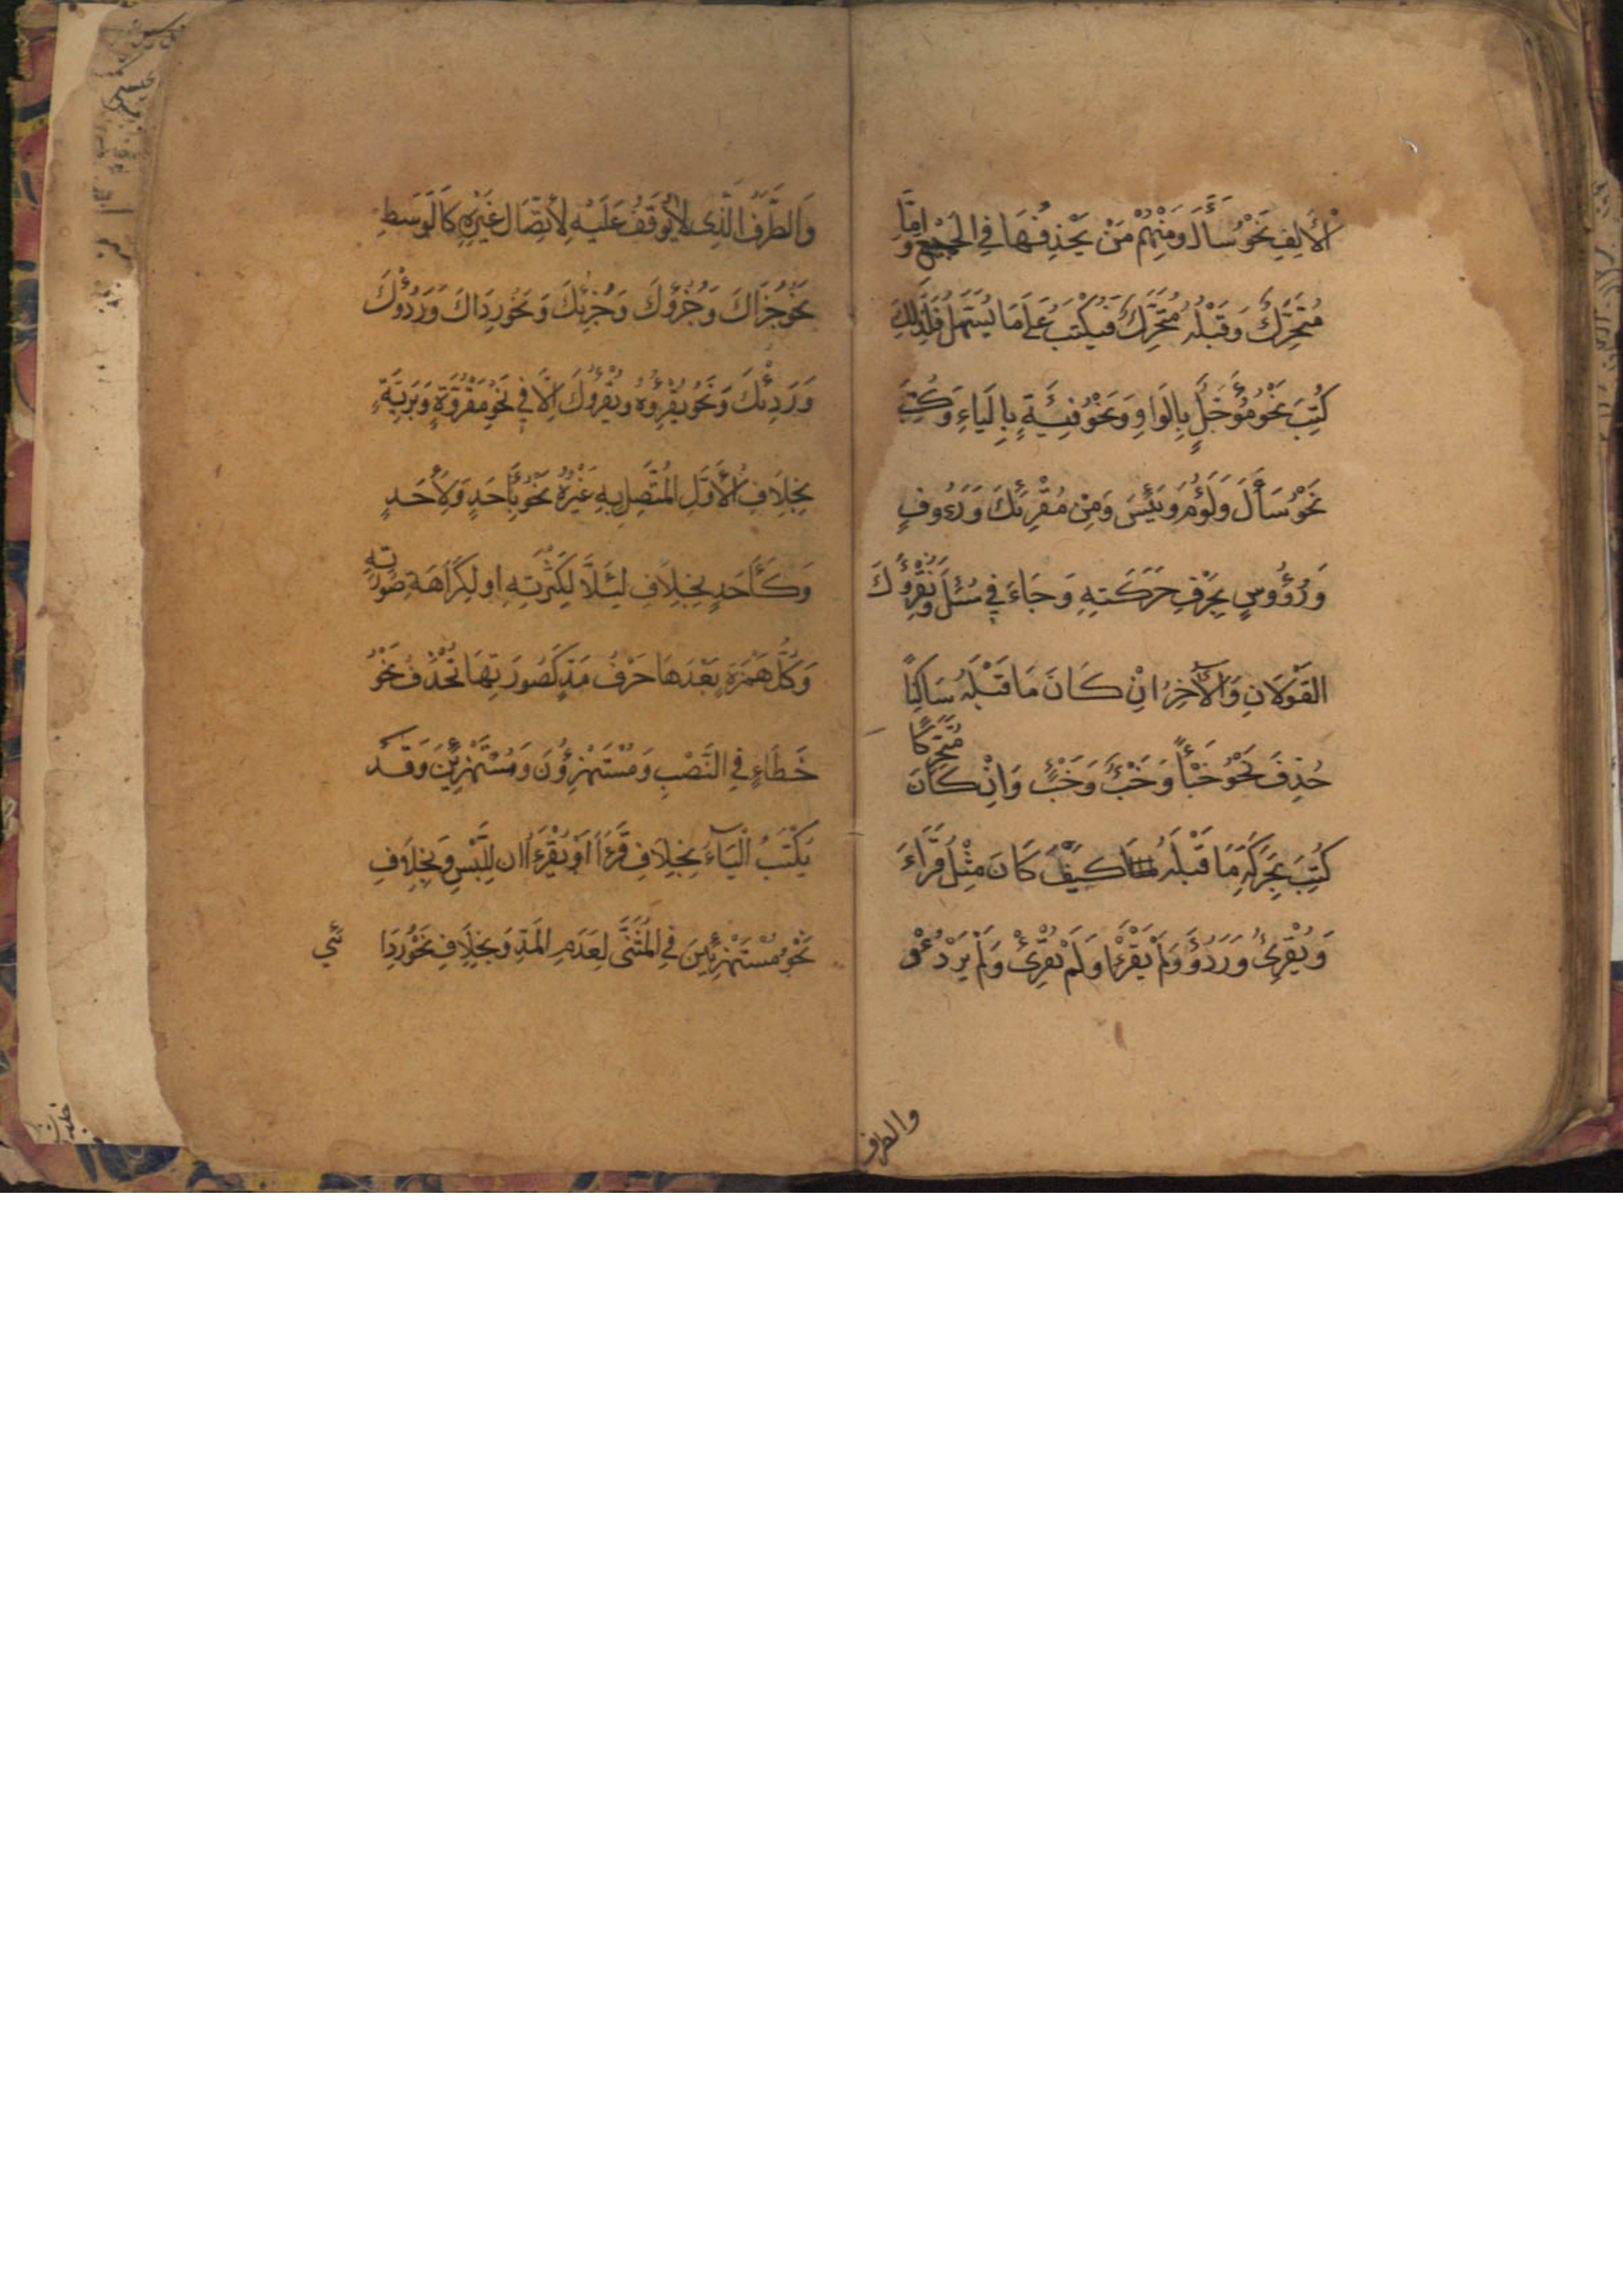 الْأَلِفِ نَحْوُ سَأَلَ وَمِنْهُمْ مَنْ يَحْذِفُهَا فِي الْجَمِيعِ وَإِمَّا
مُتَحَرِّكٌ وَقَبْلَهُ مُتَحَرِّكٌ فَيُكْتَبُ عَلَى مَا يُسَهَّلُ فَلِذَلِكَ
كُتِبَ نَحْوُ مُؤَجَّلٍ بِالْوَاوِ وَنَحْوُ فِئَةٍ بِالْيَاءِ وَكُتِبَ
نَحْوُ سَأَلَ وَلَؤُمَ وَيَئِسَ وَمِنْ مُقْرِئِكَ وَرَءُوفٍ
وَرُؤُوسٍ بِحَرْفِ حَرَكَتِهِ وَجَاءَ فِي سُئِلَ وَيُقْرِؤُكَ
الْقَوْلَانِ وَالْآخِرُ اِنْ كَانَ مَا قَبْلَهُ سَاكِنًا
حُذِفَ نَحْوُ خَبْأً وَخَبْءٌ وَخَبْءٍ وَاِنْ كَانَ مُتَحَرِّكًا
كُتِبَ بِحَرَكَةِ مَا قَبْلَهُ كَيْفَ كَانَ مِثْلُ قَرَأَ
وَيُقْرِئُ وَرَدُؤَ وَلَمْ يَقْرَأْ وَلَمْ يُقْرِئْ وَلَمْ يَرْدُؤْ
والطرف
وَالطَّرَفُ الَّذِي لَا يُوقَفُ عَلَيْهِ لِاتِّصَالِ غَيْرِهِ كَالْوَسَطِ
نَحْوُ جُزْأَكَ وَجُزْؤُكَ وَجُزْئِكَ وَنَحْوُ رِدَاكَ وَرِدْؤُكَ
وَرِدْئِكَ وَنَحْوُ يَقْرَؤُهُ وَيُقْرِؤُكَ اِلَّا فِي نَحْوِ مَقْرُوَّةٍ وَبَرِيَّةٍ
بِخِلَافِ الْأَوَّلِ الْمُتَّصِلِ بِهِ غَيْرُهُ نَحْوُ بِأَحَدٍ وَلِأَحَدٍ
وَكَأَحَدٍ بِخِلَافِ لِئَلَّا لِكَثْرَتِهِ اَوْ لِكَرَاهَةِ صُورَتِهِ
وَكُلُّ هَمْزَةٍ بَعْدَهَا حَرْفُ مَدٍّ كَصُورَتِهَا تُحْذَفُ نَحْوُ
خَطَاءٍ فِي النَّصْبِ وَمُسْتَهْزِؤُنَ وَمُسْتَهْزِئِينَ وَقَدْ
يُكْتَبُ الْيَاءُ بِخِلَافِ قَرَءَا اَوْ يَقْرَءَانِ لِلَّبْسِ وَبِخِلَافِ
نَحْوِ مُسْتَهْزِئَيْنِ فِي الْمُثَنَّى لِعَدَمِ الْمَدِّ وَبِخِلَافِ نَحْوِ رِدَائِي